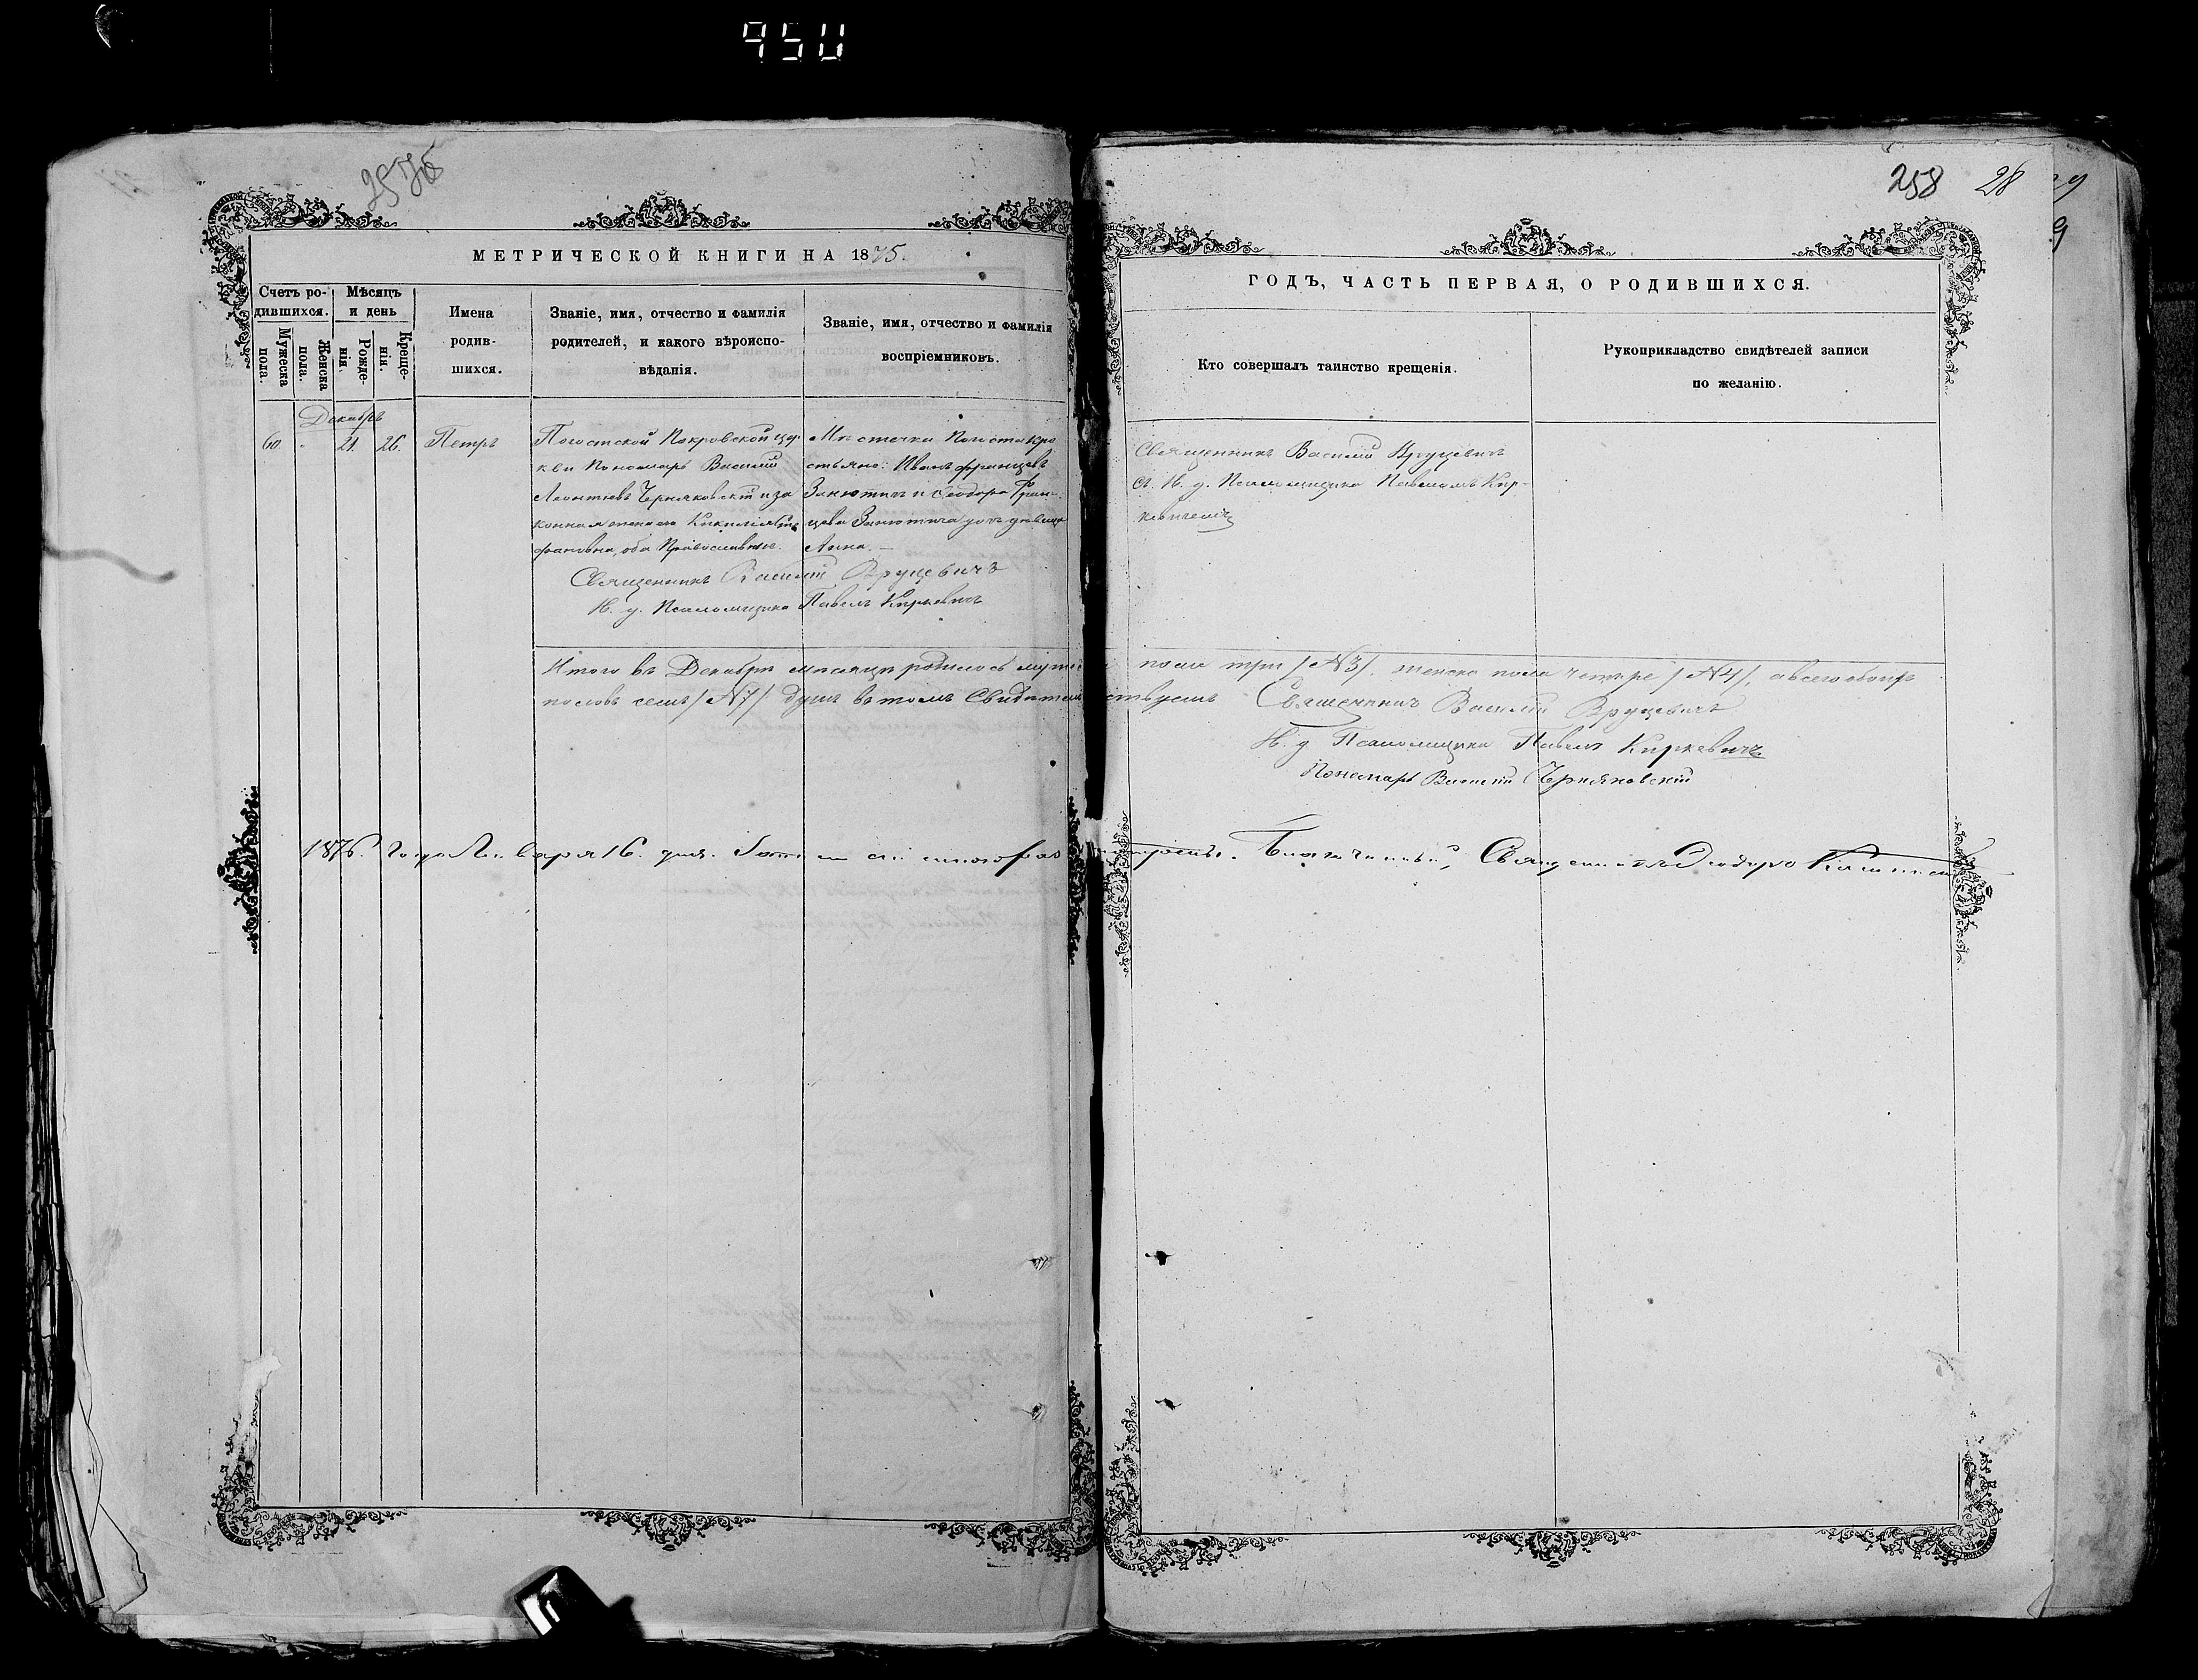 950
258 28
МЕТРИЧЕСКОЙ КНИГИ НА 1875.
ГОДЪ, ЧАСТЬ ПЕРВАЯ, О РОДИВШИХСЯ.
Счетъ ро-
дившихся.
Мужеска
пола.
Женска
пола.
Мѣсяцъ
и день
Рожде-
нія
Креще-
нія.
Имена
родив-
шихся.
Званіе, имя, отчество и фамилія
родителей, и какого вѣроиспо-
вѣданія.
Званіе, имя, отчество и фамилія
воспріемниковъ.
Кто совершалъ таинство крещенія.
Рукоприкладство свидѣтелей записи
по желанію.
Декабрь
60 21. 26. Петръ
Погостской Покровской цер-
кви Пономарь Василій
Леонтіевъ Черняковскій и за
конная жена его
оба Православные.
Мѣстечка Погоста кре
стьяне: Иванъ Францевъ
и Ѳеодора Фран-
цева дочь дѣвица
Анна.
Священникъ Василій Вруцевичъ
съ И. д. Псаломщика Павломъ Кир-
кевичемъ
Священникъ Василій Вруцевичъ
И. д. Псаломщика Павелъ Киркевичъ
Итого въ Декабрѣ мѣсяцѣ родилось муже пола три /№3/, женска пола четыре /№4/, а всего обоихъ
половъ семь /№7/ душъ въ томъ Свидѣтельствуемъ Священникъ Василій Вруцевичъ
И. д. Псаломщика Павелъ Киркевичъ
Пономарь Василій Черняковскій
1876. Года Января 16. дня. Благочинный, Священникъ